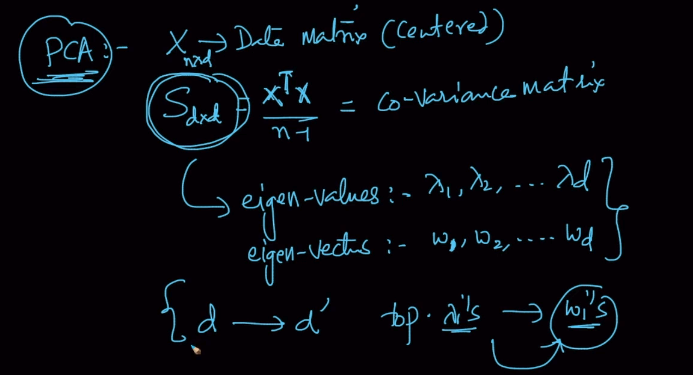 PCA :- Xnxd → Data Matrix (Centered)
Sdxd = XᵀX / n-1 = Co-variance matrix
eigen-values :- λ1, λ2, ... λd
eigen-vectors :- w1, w2, .... wd
d → d' top λi's → wi's